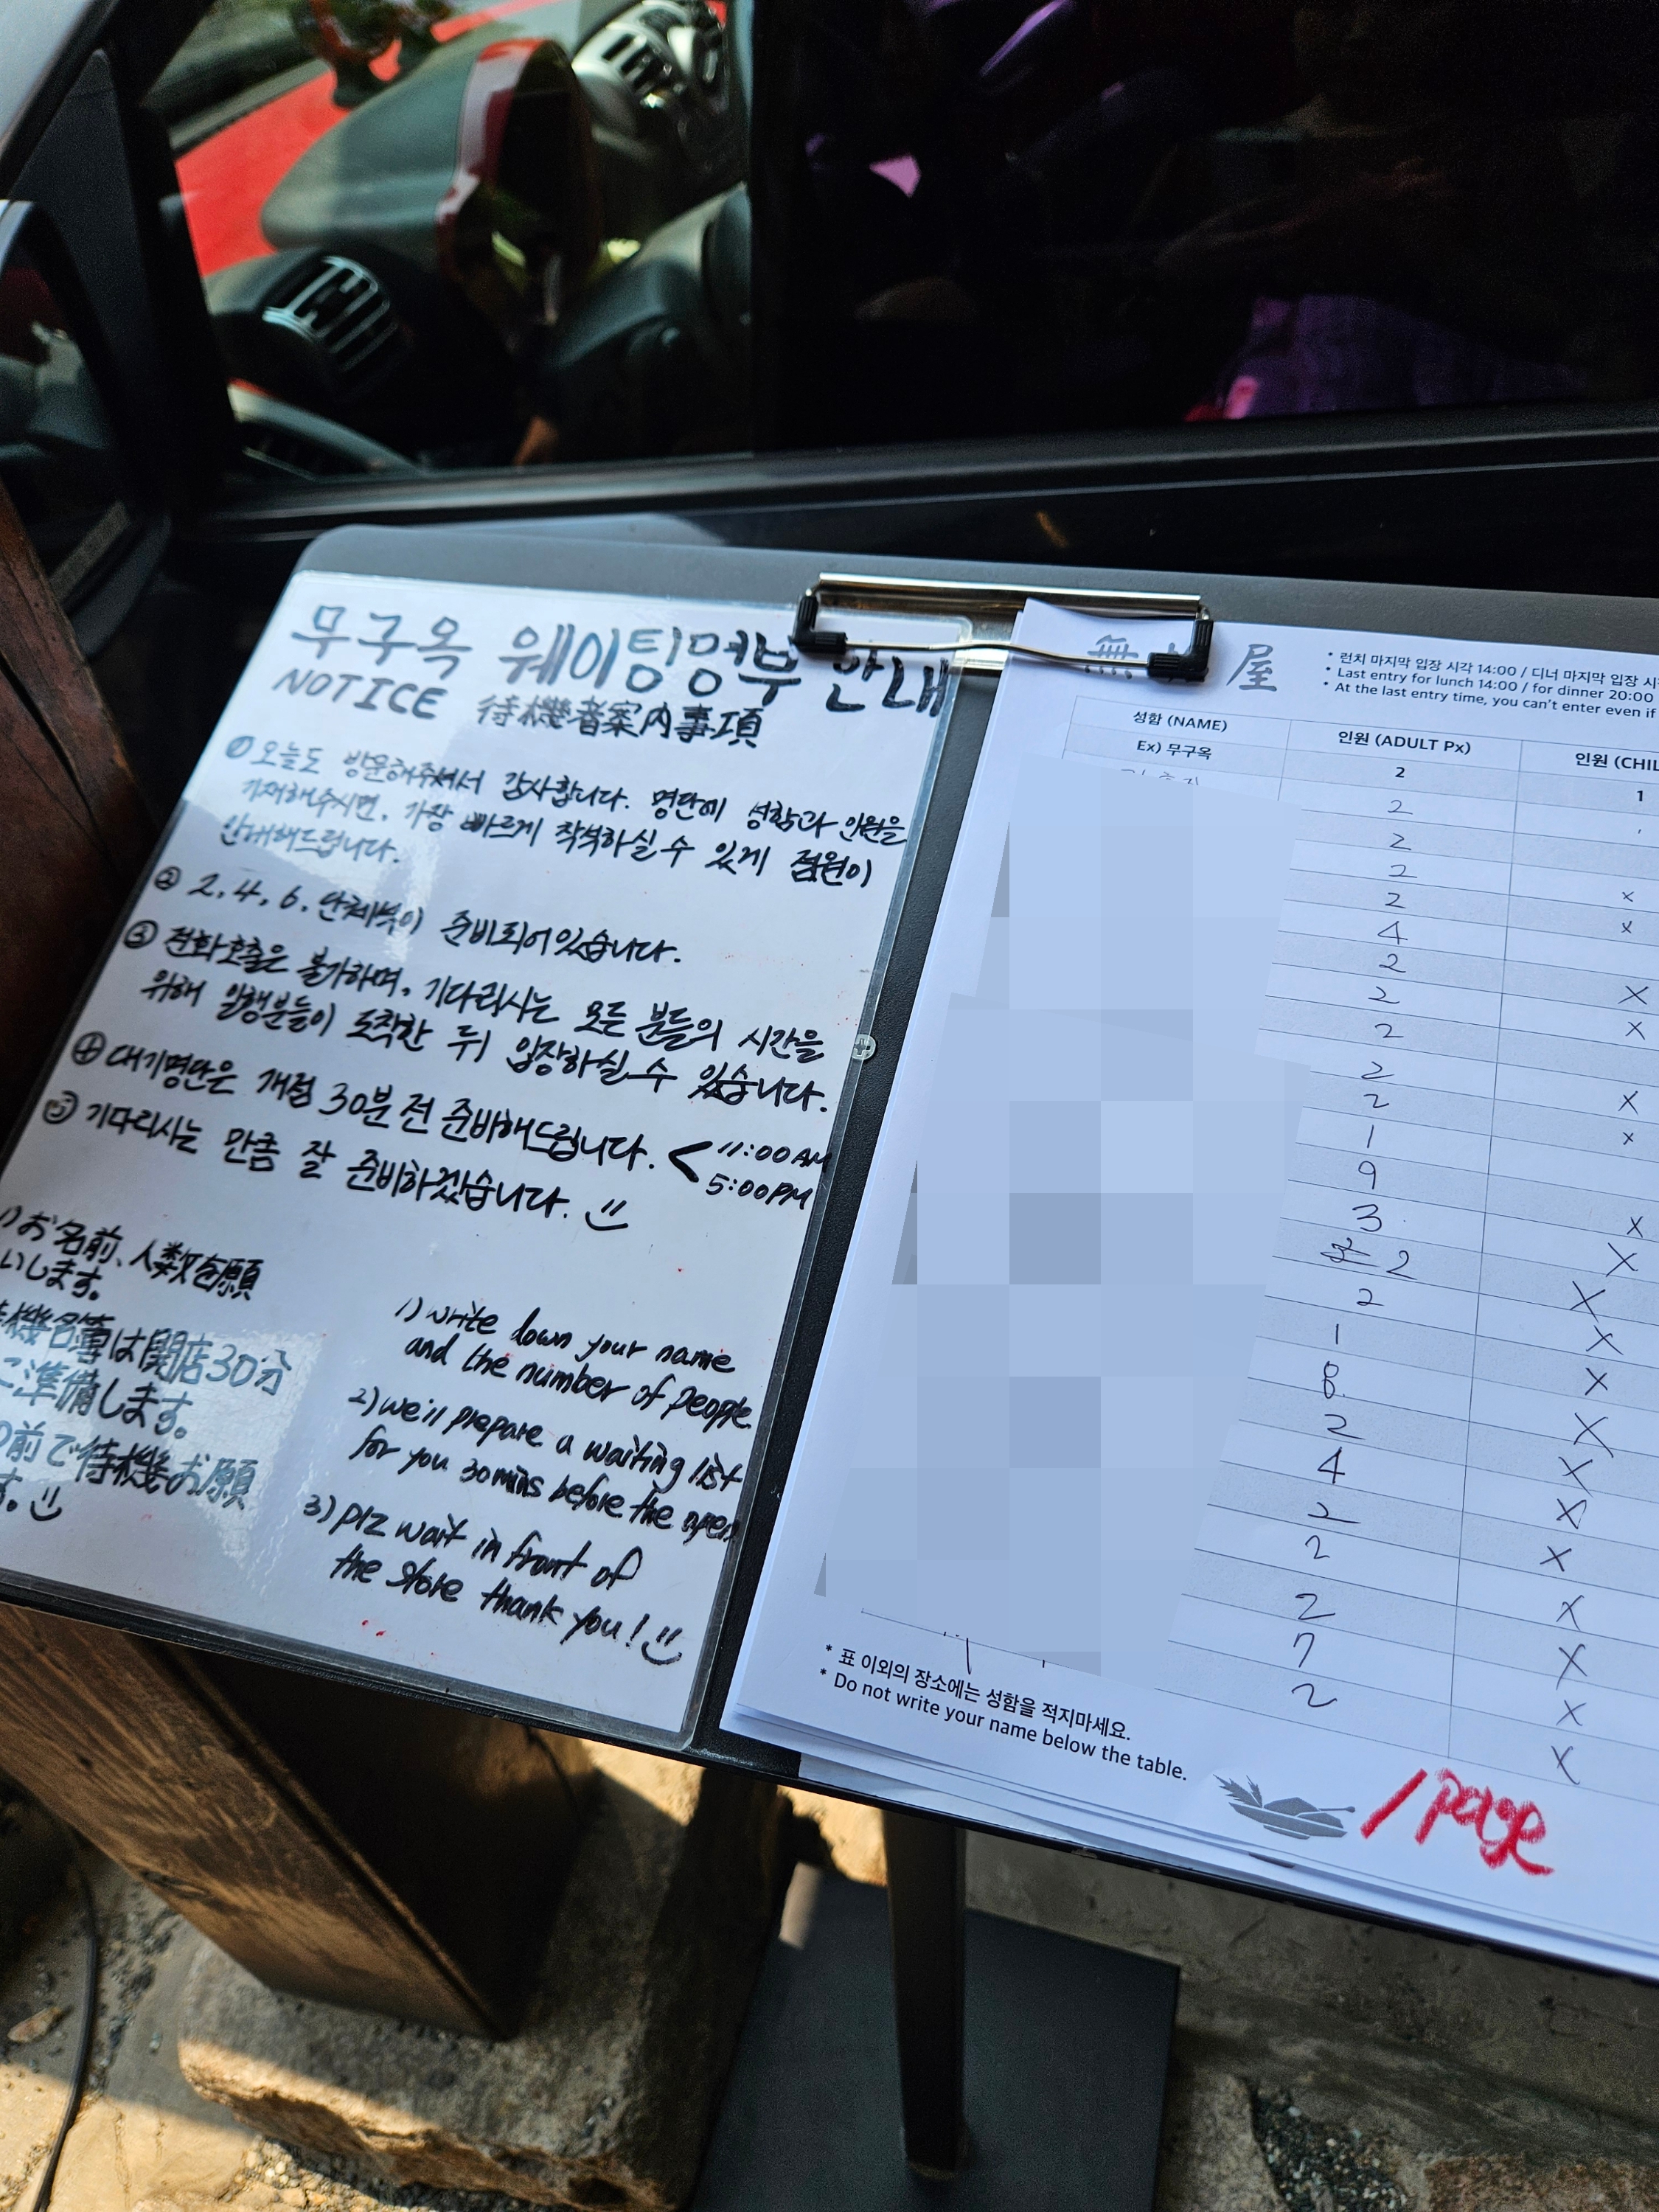 무구옥 웨이팅명부 안내
NOTICE 待機者案内事項
① 오늘도 방문해주셔서 감사합니다. 명단에 성함과 인원을
기재해주시면, 가장 빠르게 착석하실 수 있게 점원이
안내해드립니다.
② 2, 4, 6, 단체석이 준비되어있습니다.
③ 전화호출은 불가하며, 기다리시는 모든 분들의 시간을
위해 일행분들이 도착한 뒤 입장하실 수 있습니다.
④ 대기명단은 개점 30분 전 준비해드립니다. < 11:00 AM
5:00PM
기다리시는 만큼 잘 준비하겠습니다.
1) お名前、人数を願
いします。
機名簿は開店30分
に準備します。
の前で待機お願
す。
1) write down your name
and the number of people
2) we'll prepare a waiting list
for you 30mins before the open
3) plz wait in front of
the store thank you!
無 屋
• 런치 마지막 입장 시각 14:00 / 디너 마지막 입장 시
• Last entry for lunch 14:00 / for dinner 20:00
• At the last entry time, you can't enter even if
성함 (NAME) 인원 (ADULT Px) 인원 (CHIL
Ex) 무구옥 2 1
2
2
2
2 x
4 x
2
2 x
2 x
2
2 x
1 x
9
3 x
2 x
2 x
1 x
8 x
2 x
4 x
2 x
2 x
2 x
7 x
2 x
x
* 표 이외의 장소에는 성함을 적지마세요.
* Do not write your name below the table.
1 page